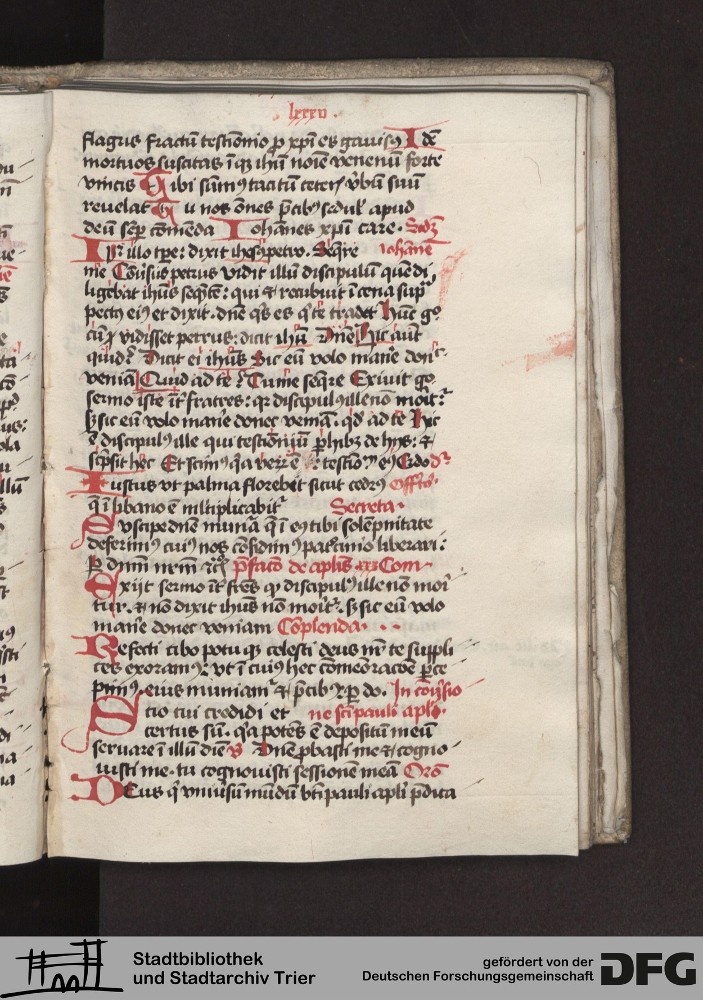 lxxxv
flagris fractū testīonio ꝓ xp̄i es gauisꝰ Idē
mortuos suscitas īqꝫ ih̄u noīe venenū forte
vincis Tibi sūmꝰ tacitū ceteꝝ v̓bū suū
reuelat Tu nos ōnes p̄cibꝰ sedul̓ apud
deū semꝑ cōmēda Iohānes xp̄m care. Scd̄m
In illo tꝑe: dixit ih̓s petro. Seq̓re iohānē
me Cōu̓sus petrus vidit illū discipulū quē di
ligebat ih̄us seqn̄tē: qui et recubuit ī cena supͬ
pectꝰ eiꝰ et dixit. dn̄e qͥs es qͥ te tradet Hūc g̊
cū vidisset petrus: dicit ih̄u Dn̄e Hic aūt
quid? Dicit ei ih̄us Sic eū volo manē donec
veniā Quid ad te? Tu me seq̓re Exiuit g̊
sermo iste īt̓ fratres: qꝛ discipulꝰ ille nō moīt:̓
Sꝫ sic eū volo manē donec veniam. qͥd ad te Hic
ē discipulꝰ ille qui testīoniū ꝑhibꝫ de hijs: et
sc̓psit hec Et scimꝰ qꝛ veꝝ ē testīoᵐ eꝰ Credo d̓
Iustus vt palma florebit sicut cedrꝰ Offrͫ.
q̄ ī libano ē mltiplicabit̓ Secreta.
Suscipe dn̄e munīa q̄ ī eꝰ tibi solēpnitate
deferimꝰ cuiꝰ nos cōfidimꝰ pat̓cinio liberari:
ꝑ dnm̄ nr̄m rc̄ p̄facō de apl̄is Com
Exijt sermo īt̓ fr̄es qꝫ discipulꝰ ille nō mori
tur. et nō dixit ih̄us nō moīt̓. sꝫ sic eū volo
manē donec veniam Cōplenda
Refecti cibo potu qꝫ celesti deus nr̄ te suppli
ces exoramꝰ: vt ī cuiꝰ hec cōmeōracōe ꝑce
pimꝰ, eius muniamͬ et p̄cibꝰ ꝑ do. In cōu̓sio
Scio cui credidi et ne sc̄i pauli apl̄i.
certus sū. qꝛ potēs ē depositū meū
seruare ī illū diē v̓ Dn̄e ꝓbasti me et cogno
uisti me. tu cognouisti sessionē meā Orō
Deus qͥ vniu̓sū mūdū bt̄i pauli apl̄i p̄dica
Stadtbibliothek
und Stadtarchiv Trier
gefördert von der
Deutschen Forschungsgemeinschaft
DFG